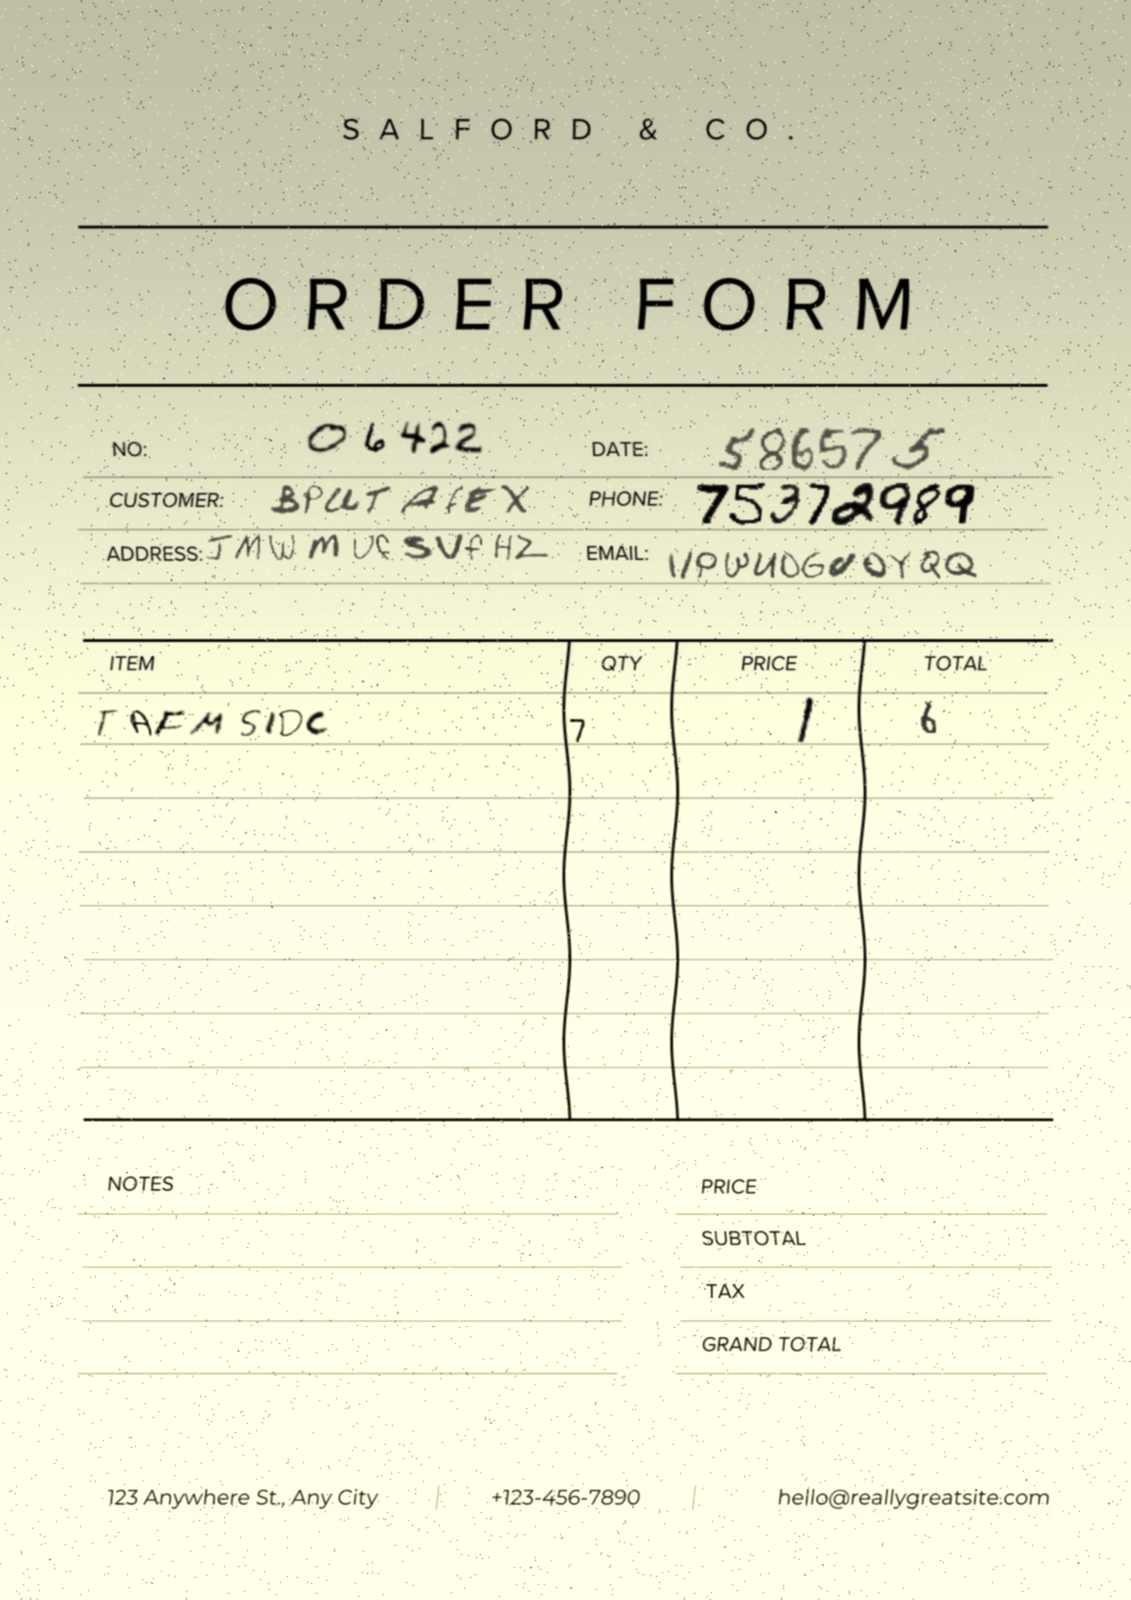 SALFORD & CO.
ORDER FORM
NO: 06422 DATE: 586575
CUSTOMER: BPUUT AFEX PHONE: 75372989
ADDRESS: EMAIL:
ITEM QTY PRICE TOTAL
TAFM SIDC 7 1 6
NOTES PRICE
SUBTOTAL
TAX
GRAND TOTAL
123 Anywhere St., Any City | +123-456-7890 | hello@reallygreatsite.com